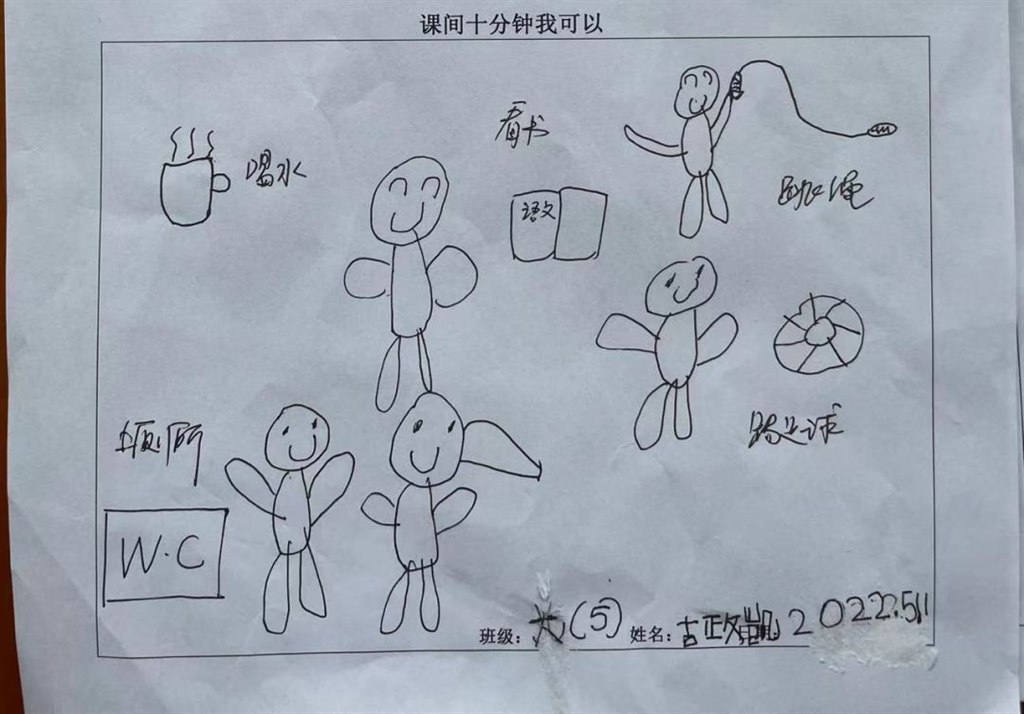 课间十分钟我可以
看书
喝水
语文
跳绳
踢足球
上厕所
W·C
班级：大(5) 姓名：古政凯 2022.5.11